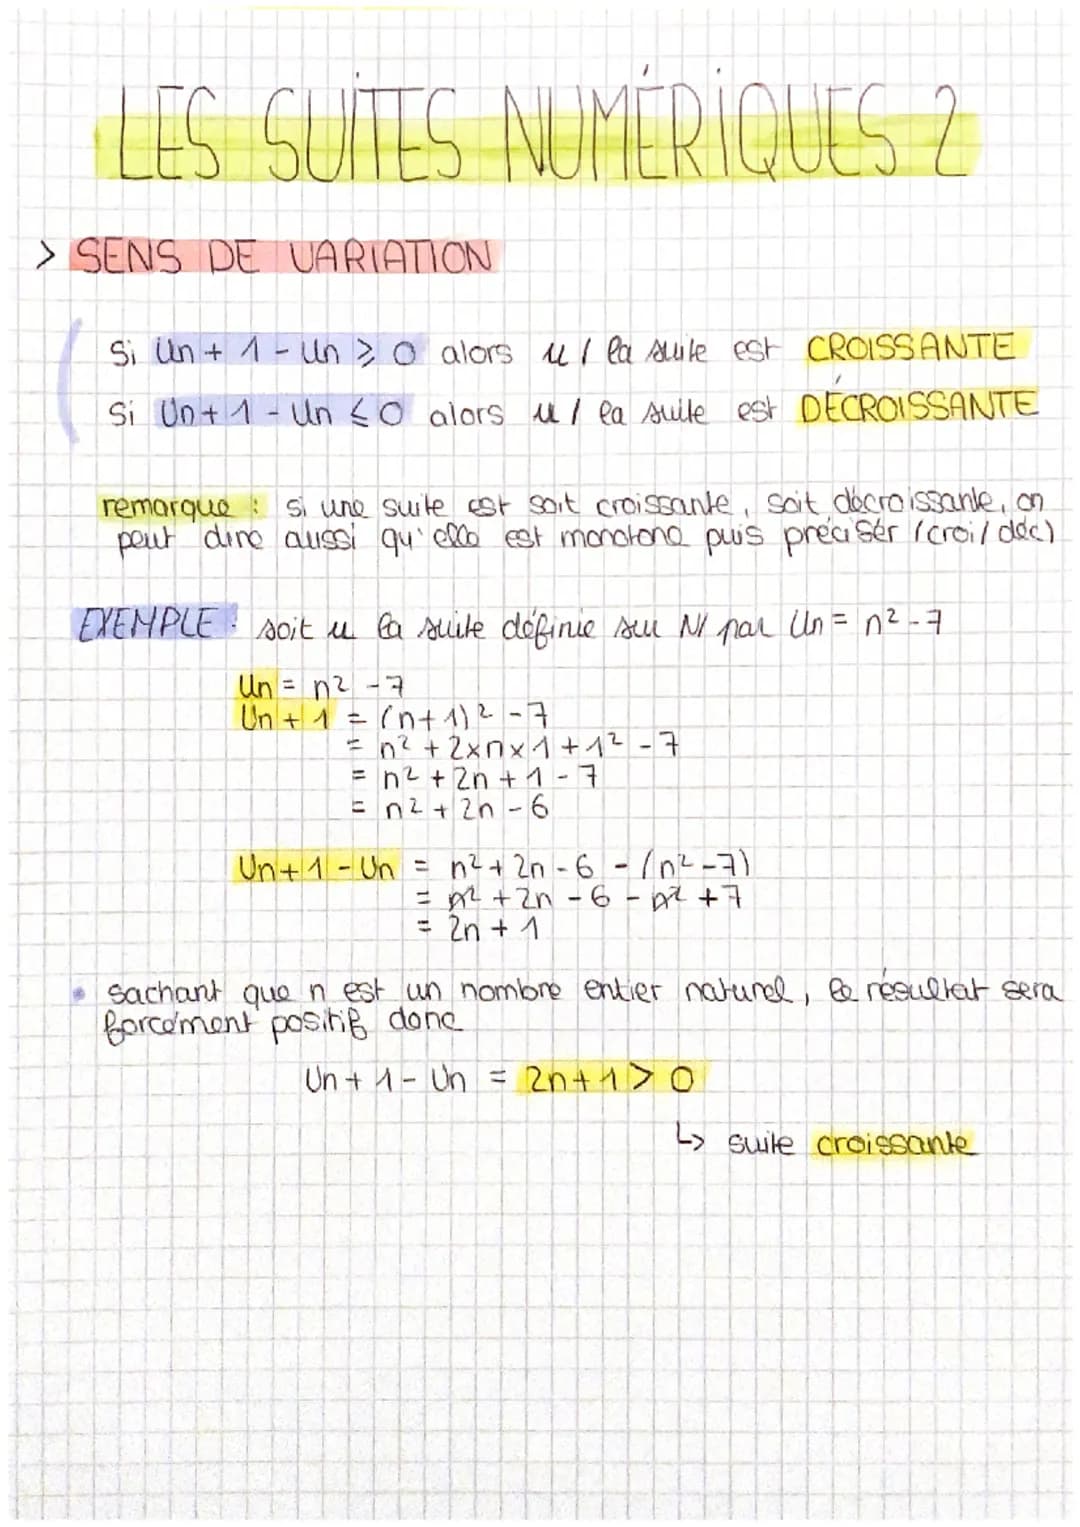 LES SUITES NUMÉRIQUES 2
> SENS DE VARIATION
Si Un + 1 - Un ⩾ 0 alors u / la suite est CROISSANTE
Si Un + 1 - Un ⩽ 0 alors u / la suite est DÉCROISSANTE
remarque : si une suite est soit croissante, soit décroissante, on
peut dire aussi qu'elle est monotone puis préciser (croi/déc)
EXEMPLE : soit u la suite définie sur ℕ par Un = n² - 7
Un = n² - 7
Un + 1 = (n+1)² - 7
= n² + 2×n×1 + 1² - 7
= n² + 2n + 1 - 7
= n² + 2n - 6
Un + 1 - Un = n² + 2n - 6 - (n² - 7)
= n² + 2n - 6 - n² + 7
= 2n + 1
• sachant que n est un nombre entier naturel, le résultat sera
forcément positif donc
Un + 1 - Un = 2n + 1 > 0
↳ suite croissante